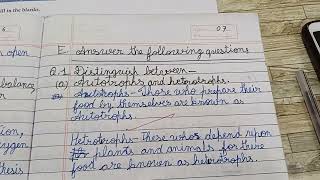 ill in the blanks.
6
07
en open
balance,
on,
ygen
thesis
E Answer the following questions
Q.1 Distinguish between—
(a) Autotrophs and heterotrophs.
Autotrophs- Those who prepare their
food by themselves are known as
Autotrophs.
Hetrotrophs- These who depend upon
plants and animals for there
food are known as heterotrophs.